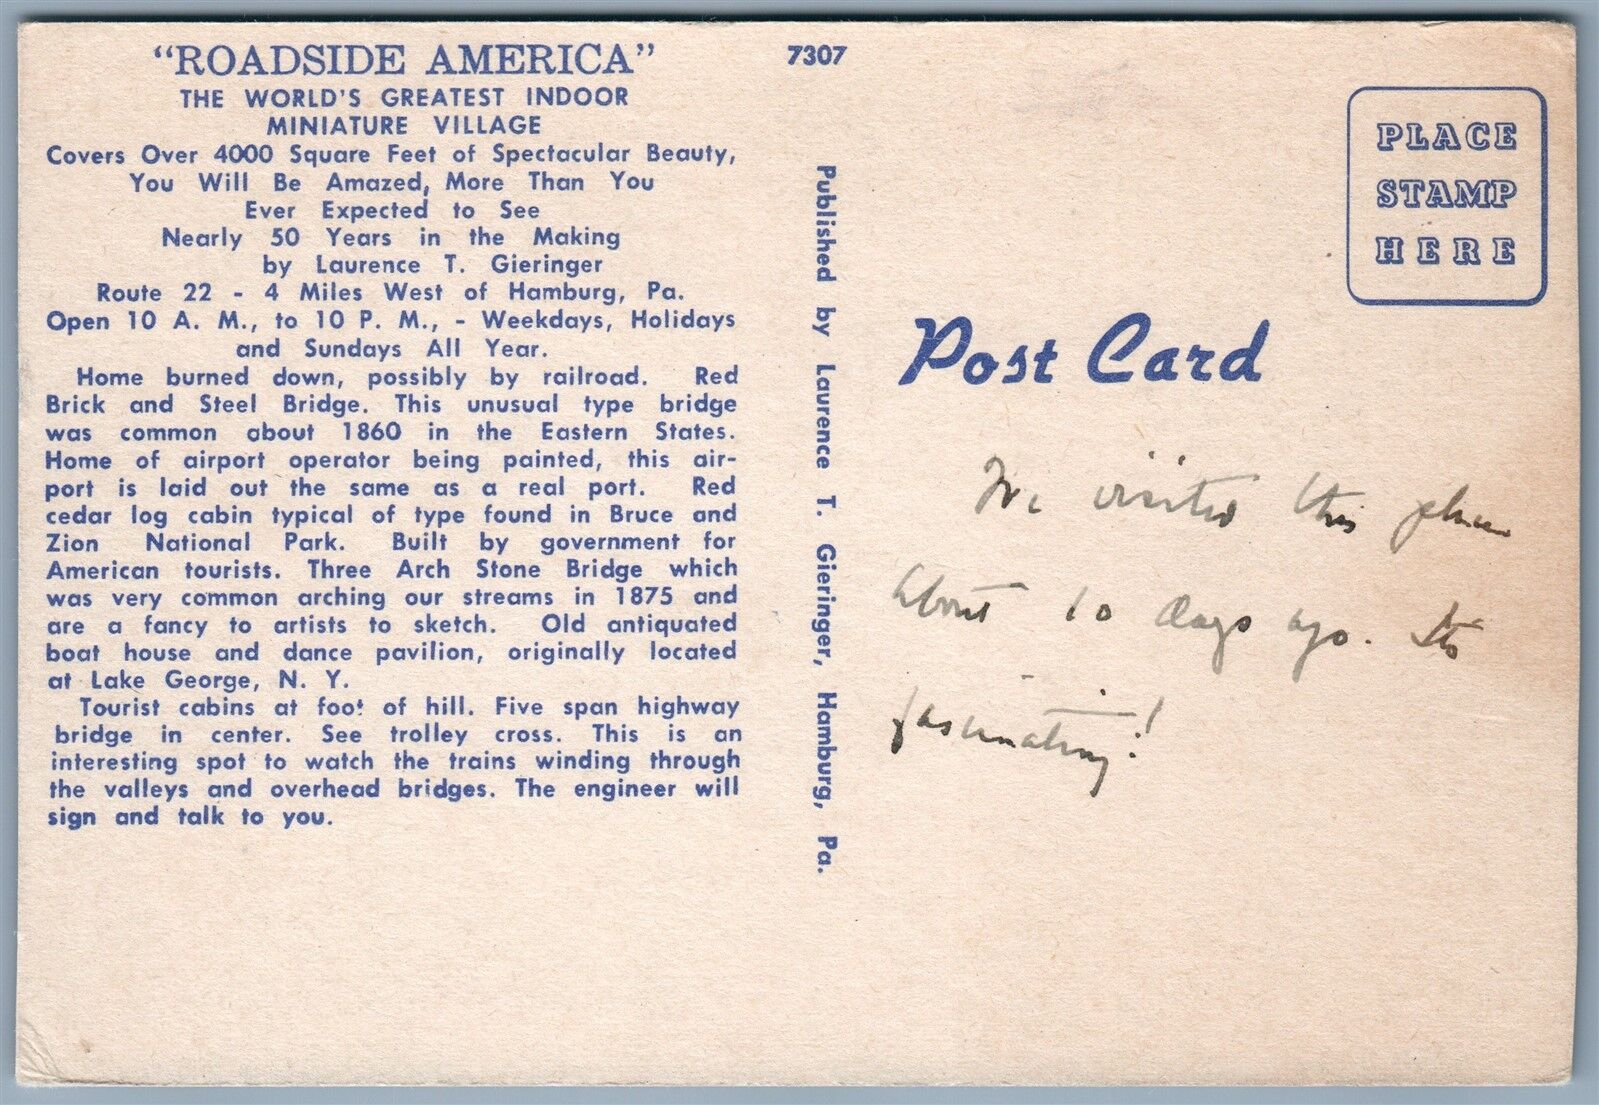 "ROADSIDE AMERICA"
THE WORLD'S GREATEST INDOOR
MINIATURE VILLAGE
Covers Over 4000 Square Feet of Spectacular Beauty,
You Will Be Amazed, More Than You
Ever Expected to See
Nearly 50 Years in the Making
by Laurence T. Gieringer
Route 22 - 4 Miles West of Hamburg, Pa.
Open 10 A. M., to 10 P. M., - Weekdays, Holidays
and Sundays All Year.
Home burned down, possibly by railroad. Red
Brick and Steel Bridge. This unusual type bridge
was common about 1860 in the Eastern States.
Home of airport operator being painted, this air-
port is laid out the same as a real port. Red
cedar log cabin typical of type found in Bruce and
Zion National Park. Built by government for
American tourists. Three Arch Stone Bridge which
was very common arching our streams in 1875 and
are a fancy to artists to sketch. Old antiquated
boat house and dance pavilion, originally located
at Lake George, N. Y.
Tourist cabins at foot of hill. Five span highway
bridge in center. See trolley cross. This is an
interesting spot to watch the trains winding through
the valleys and overhead bridges. The engineer will
sign and talk to you.
7307
Published by Laurence T. Gieringer, Hamburg, Pa.
PLACE
STAMP
HERE
Post Card
We visited this place
about 10 days ago. Its
fascinating!